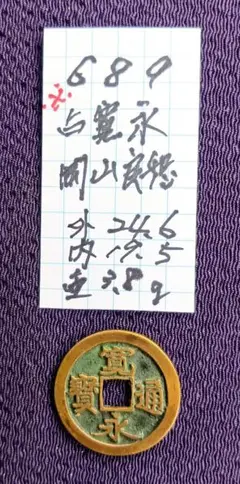 689
※
古寛永
岡山良恕
外 24.6
内 19.5
重 3.8g
寛永通寳